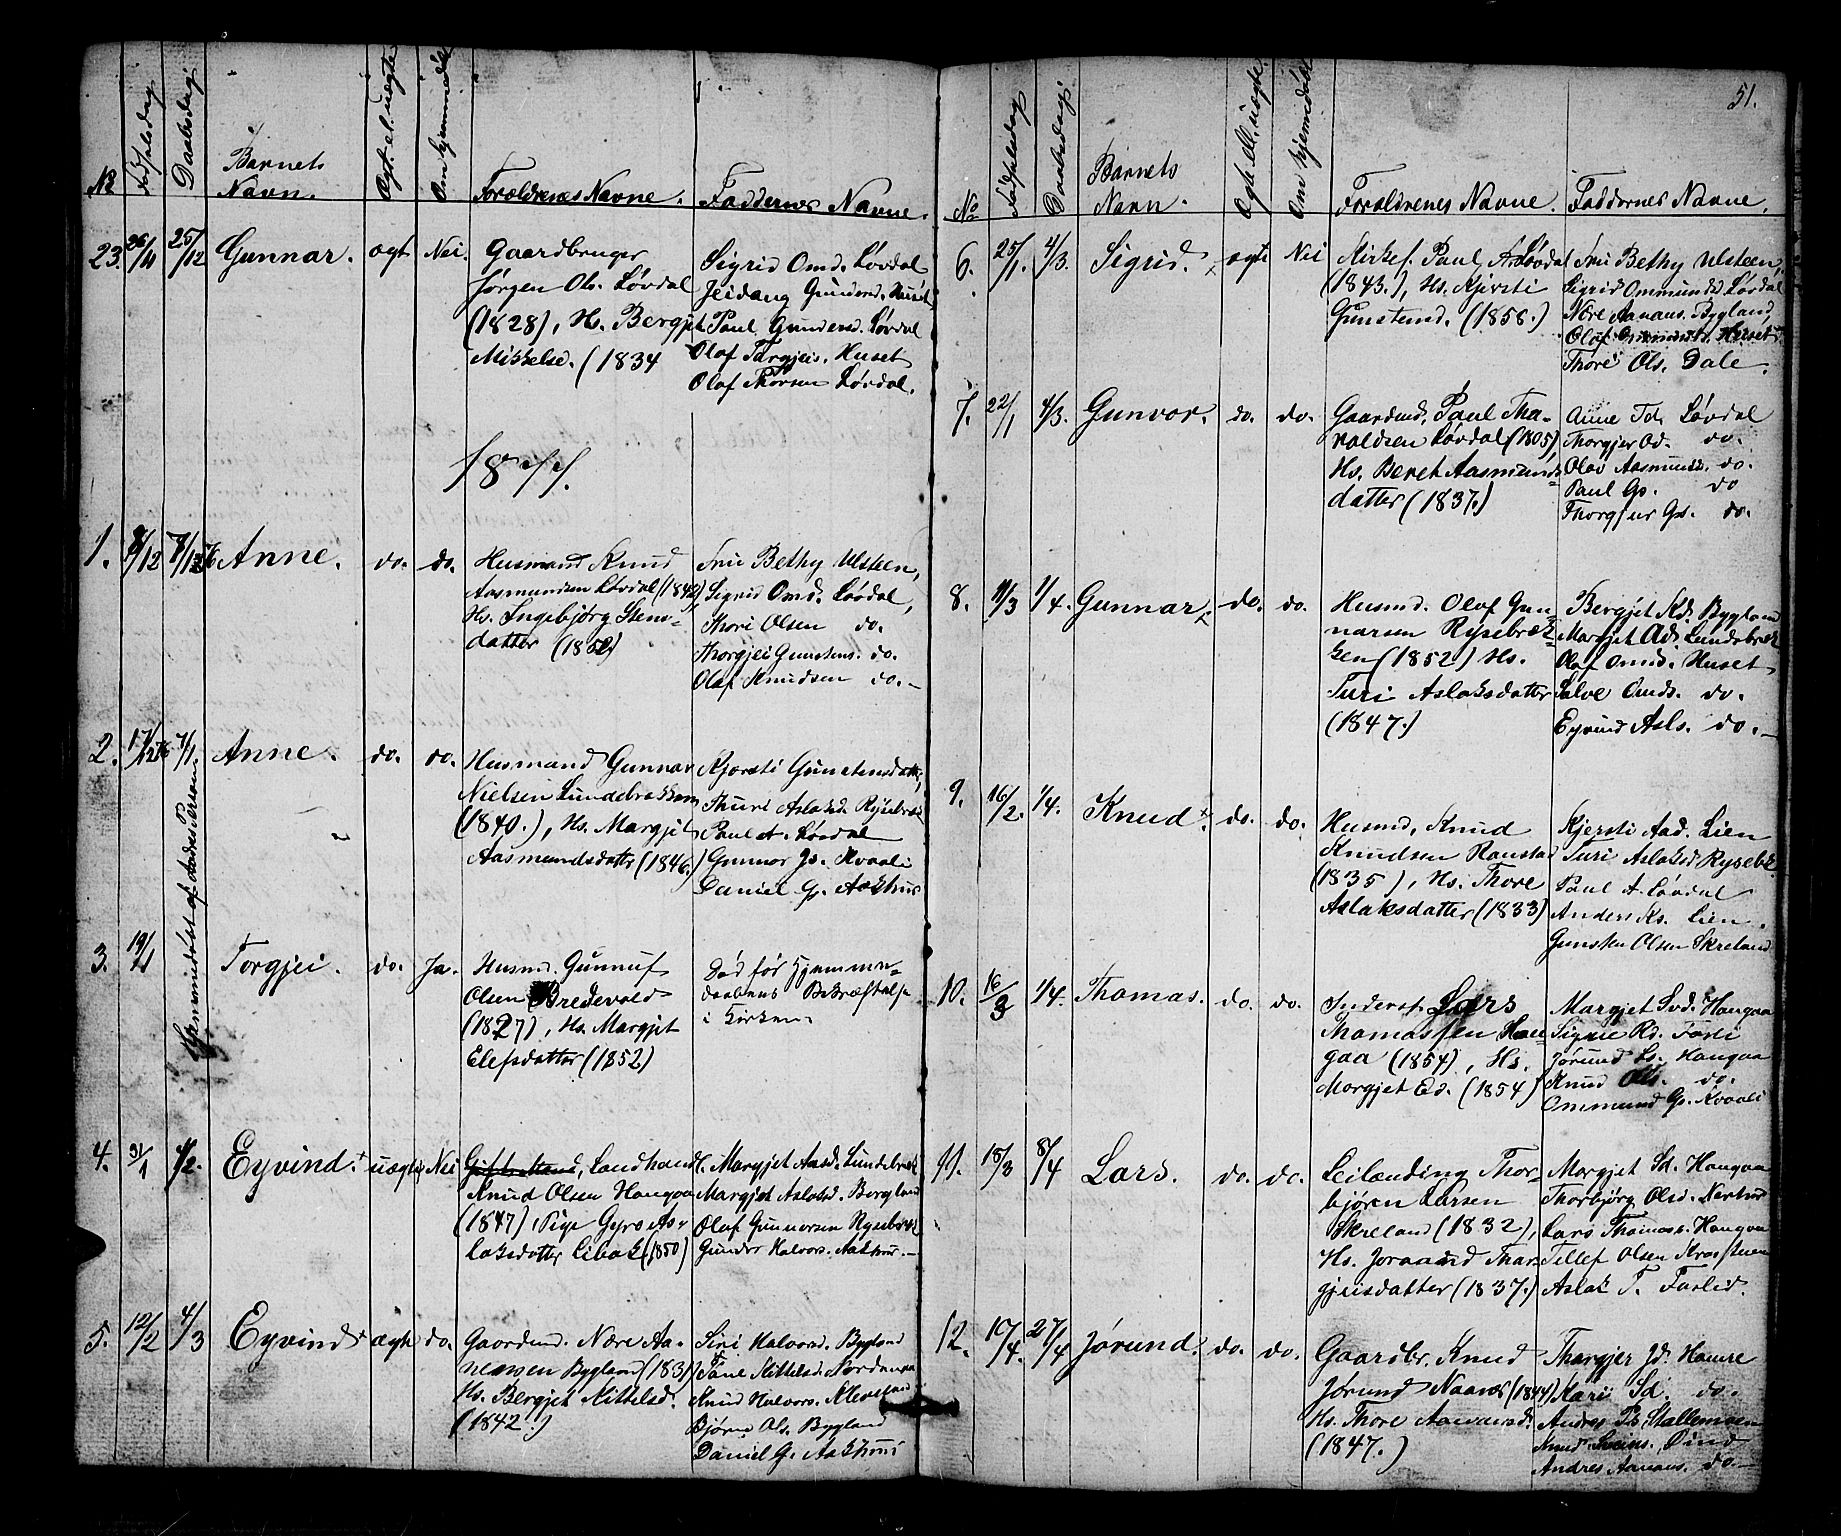 No
Fødselsdag
Daabsdag
Barnets
Navn.
Ægt. el. uægte
Om hjemmedøbt
Forældrenes Navne.
Faddernes Navne.
23. 26/11 25/12 Gunnar. ægt Nei.
Gaardbruger
Jørgen Ols. Løvdal
(1828), H. Bergjet
Mikkelsd. (1834
Sigrid Omd. Løvdal
Paul Gundersd. Løvdal
Olaf Targjeis. Huset
Olaf Thorsen Løvdal.
1877.
1. 8/12 76 Anne. do. do.
Husmand Knud
Aasmundsen Løvdal (1842)
Hs. Ingebjørg Stens-
datter (1852)
Fru Bethy Ulsteen,
Sigrid Omd. Løvdal,
Thore Olsen do.
Thorgjei Gunstens. do.
Olaf Knudsen do.-
2. 17/12 76 7/1. Anne. do. do.
Husmand Gunnar
Nielsen Lundebrækken
(1840.), Hs. Margjet
Aasmundsdatter (1846.)
Kjersti Gunstensdatter,
Thuri Aslaksd. Rysebræk
Paul A. Løvdal
Gunnar Js. Kvaale
Daniel G. Aakhus
Hjemmedøbt af Andres Person
3. 19/1 Torgjei. do. Ja.
Husmd. Gunnuf
Olsen Bredevold
(1827), Hs. Margjet
Elefsdatter (1852)
Død før Hjemme-
daabens Bekræftelse
i Kirken
4. 31/1 4/2. Eyvind. uægte Nei
Gift Mand, Landhand.
Knud Olsen Haugaa
(1847), Pige Gyro As-
laksdatter Libak (1850)
Margjet Aasd. Lundebræk
Margjet Aslaksd. Bygland
Olaf Gunnarsen Rysebræk
Gunder Halvors. Aakhus.-
5. 12/2 4/3 Eyvind ægte do.
Gaardmd. Nære Aa-
nensen Bygland (1831)
Hs. Bergjet Kittelsd.
(1842.)
Siri Halvorsd. Bygland
Tone Kittelsd. Nordenaa
Knud Halvors.
Bjørn Ols. Bygland
Daniel G. Aakhus
51.
No
Fødselsdag
Daabsdag
Barnets
Navn.
Ægte ell. uægte.
Om hjemmedøbt
Forældrenes Navne.
Faddernes Navne.
6. 25/1. 4/3. Sigrid. ægte Nei
Kirkes. Paul As. Løvdal
(1843.), Hs. Kjersti
Gunstensd. (1856.)
Fru Bethy Ulsteen,
Sigrid Ommunds. Løvdal
Nære Aanans. Bygland
Olaf Ommunds. Huset
Thore Ols. Dale.
7. 22/1 4/3. Gunvor. do. do.
Gaardmd. Paul Tha-
raldsen Løvdal (1805),
Hs. Beret Aasmunds-
datter (1837.)
Anne Td. Løvdal
Thorgjer Od. do.
Olav Aasmunds. do.
Paul Gs. do
Thorgjus Gs. do.
8. 11/3 1/4. Gunnar. do. do.
Husmd. Olaf Gun-
narsen Rysebræk-
ken (1852) Hs.
Turi Aslaksdatter
(1847.)
Bergjet Kd. Bygland
Margjet Ad. Lundebræk
Olaf Omds. Huset
Salve Omds. do.
Eyvind Asls. do.-
9. 16/2. 1/4. Knud. do. do.
Husmd, Knud
Knudsen Ranstad
(1835), Hs. Thore
Aslaksdatter (1833)
Kjersti Aad. Lien
Turi Aslaksd Rysebk
Paul A. Løvdal
Anders Ks. Lien.
Gunsten Olsen Skreland
10. 16/3 1/4. Thomas. do. do.
Inderst. Lars
Thomassen Hau-
gaa (1854), Hs.
Margjet Ed. (1854)
Margjet Svd. Haugaa
Signe Rd. Farli
Jørund Ls. Haugaa
Knud Ols. do.
Ommund Gs. Kvaali
11. 15/3 8/4 Lars. do. do.
Leilænding Thor-
bjørn Larsen
Skreland (1832),
Hs. Joraand Thar-
gjeisdatter (1837.)
Margjet Sd. Haugaa
Thorbjørg Olsd.
Lars Thomass. Haugaa
Tellef Olsen
Aslak T. Farlid.
12. 10/4. 27/4 Jørund. do. do.
Gaardbr. Knud
Jørunds. Naanes (1844)
Hs. Thore Aanansd.
(1847.)
Thargjer Jd. Hamre
Kari Sd. do.
Andres Ps Stallemoen
Knud Sveins. Øind
Andres Aanans. do.-